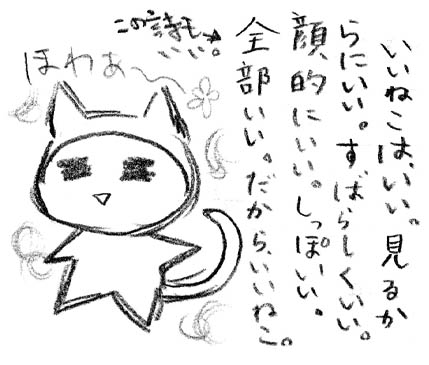 いいねこは、いい。見るか
らにいい。すばらしくいい。
顔的にいい。しっぽいい。
全部いい。だから、いいねこ。
この詩も
いいい。
ほわぁ〜